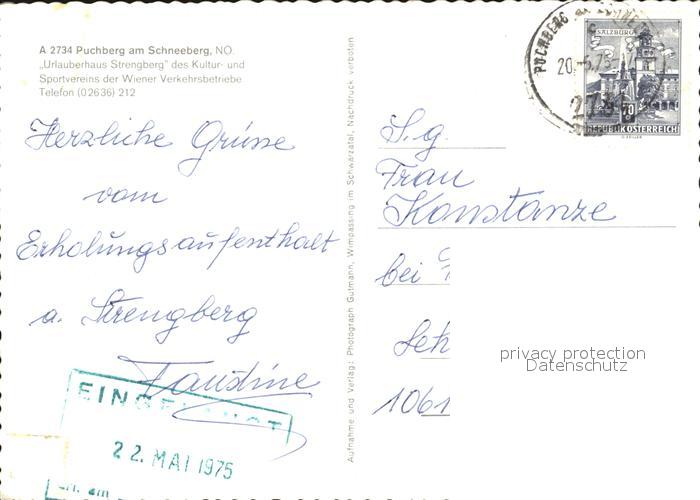 A 2734 Puchberg am Schneeberg, NÖ.
„Urlauberhaus Strengberg" des Kultur- und
Sportvereins der Wiener Verkehrsbetriebe
Telefon (02636) 212
Herzliche Grüsse
vom
Erholungsaufenthalt
a. Strengberg
Faustine
22. MAI 1975
Aufnahme und Verlag: Photograph Gutmann, Wimpassing im Schwarzatal, Nachdruck verboten
PUCHBERG
20.-5.75
2734
SALZBURG
70
REPUBLIK ÖSTERREICH
S. g.
Frau
Konstanze
bei
1061
privacy protection
Datenschutz